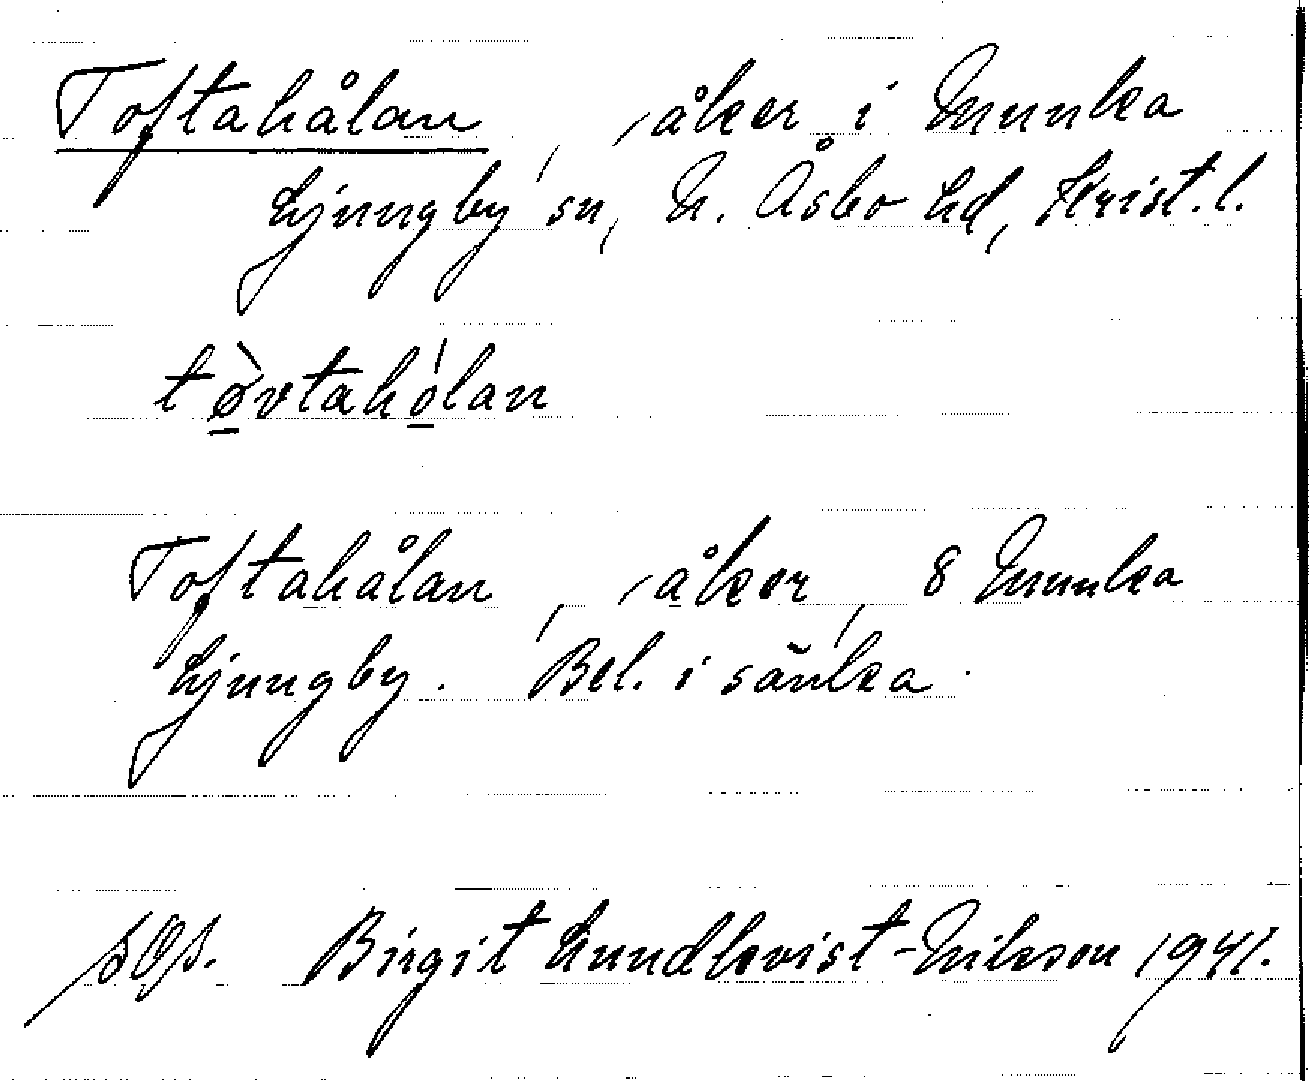 Toftahålan, åker i Munka
Ljungby sn, N. Åsbo hd, Krist. l.
tø̀vtahólan
Toftahålan, åker, 8 Munka
Ljungby. Bel. i sänka.
Birgit Lundkvist-Nilsson 1941.